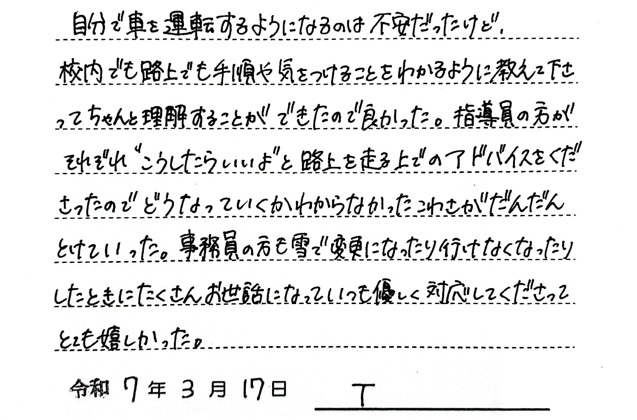 自分で車を運転するようになるのは不安だったけど、
校内でも路上でも手順や気をつけることをわかるように教えて下さ
ってちゃんと理解することができたので良かった。指導員の方が
それぞれ"こうしたらいいよ"と路上を走る上でのアドバイスをくだ
さったのでどうなっていくかわからなかったこわさがだんだん
とけていった。事務員の方も雪で変更になったり行けなくなったり
したときにたくさんお世話になっていつも優しく対応してくださって
とても嬉しかった。
令和 7 年 3 月 17 日 T